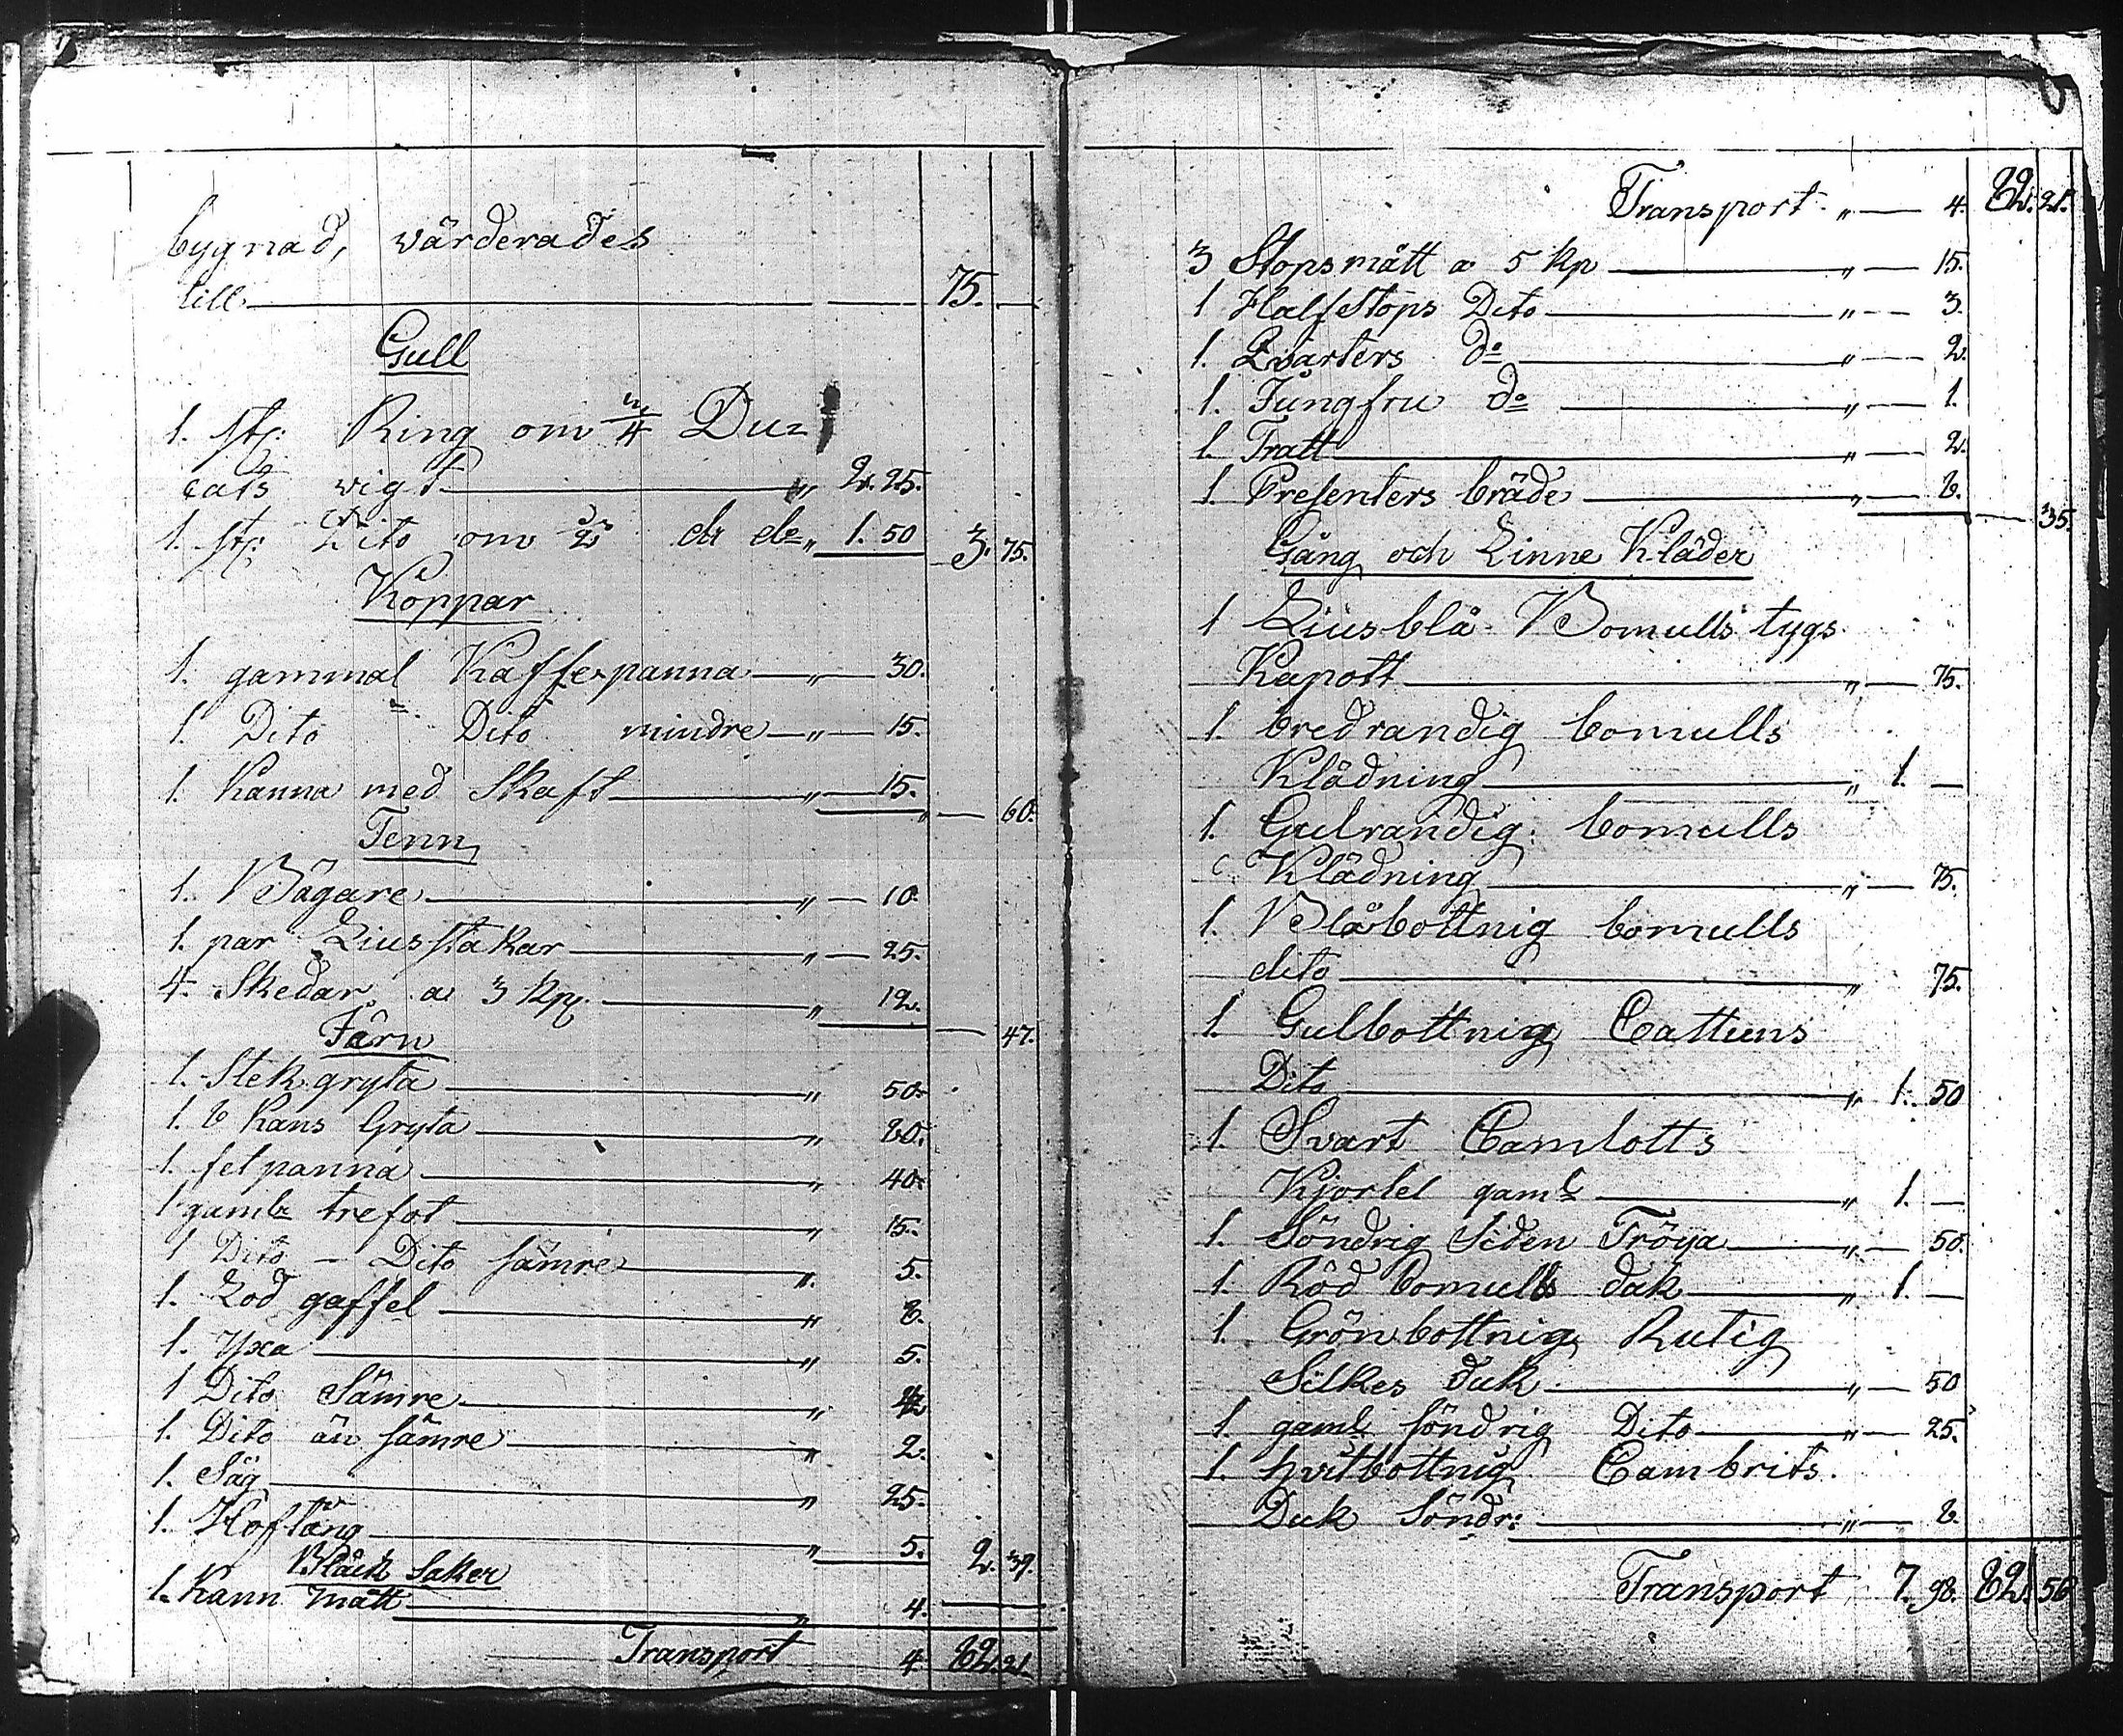 bygnad, värderades
till — 75. —
Gull
1. st: Ring om 3/4 Du=
cats vigt — „ 2. 25.
1. st: Dito om ½ d: d:o „ 1. 50 3. 75.
Koppar
1. gammal Kaffepanna — „ — 30.
1. Dito Dito mindre — „ — 15.
1. Kanna med Skaft — „ — 15. „ — 60.
Tenn
1. Bägare — „ — 10.
1. par Liusstakar — „ — 25.
4. Skedar a 3 kp — „ 12. — 47.
Järn
1. Stekgryta — „ 50.
1. 6 Kans Gryta — „ 80.
1. fet panna — „ 40.
1 gaml: trefot — „ 15.
1 Dito — Dito sämre — „ 5.
1. Lod gaffel — „ 8.
1. Yxa — „ 5.
1 Dito Sämre — „ 4
1. Dito än sämre — „ 2.
1. Såg — „ 25.
1. Hoftång — „ 5. 2. 39.
Bläck Saker
1. Kann mått — „ 4. —
Transport 4 82. 21.
Transport „ — 4. 82. 21.
3 Stopsmått a 5 kp — „ — 15.
1 Half Stops Dito — „ — 3.
1. Qvarters do — „ — 2.
1. Jungfru do — „ — 1.
1. Tratt — „ — 2.
1 Presenters bräde — „ — 8. — 35.
Gång och Linne Kläder
1 Liusblå Bomulls tygs
Kapott — „ — 75.
1. bredrandig bomulls
Klädning — „ 1. —
1. Gulrandig bomulls
Klädning — „ — 75.
1. Blåbottnig bomulls
dito — „ 75.
1. Gulbottnig Cattuns
Dito — „ 1. 50
1. Svart Camlotts
Kjortel gaml — „ 1. —
1. Söndrig Siden Tröya — „ — 50.
1. Röd bomulls duk — „ 1. —
1. Grönbottnig Rutig
Silkes duk — „ — 50
1. gaml söndrig Dito — „ — 25.
1. hvitbottnig Cambrits
Duk Söndr: — „ — 8.
Transport 7. 98. 82. 56.